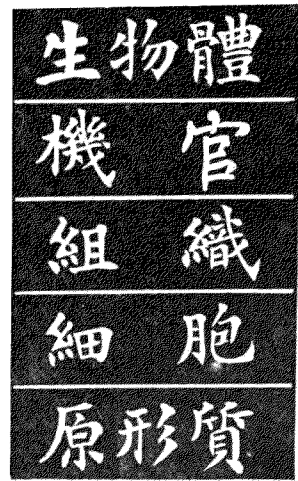 生物體
機官
組織
細胞
原形質